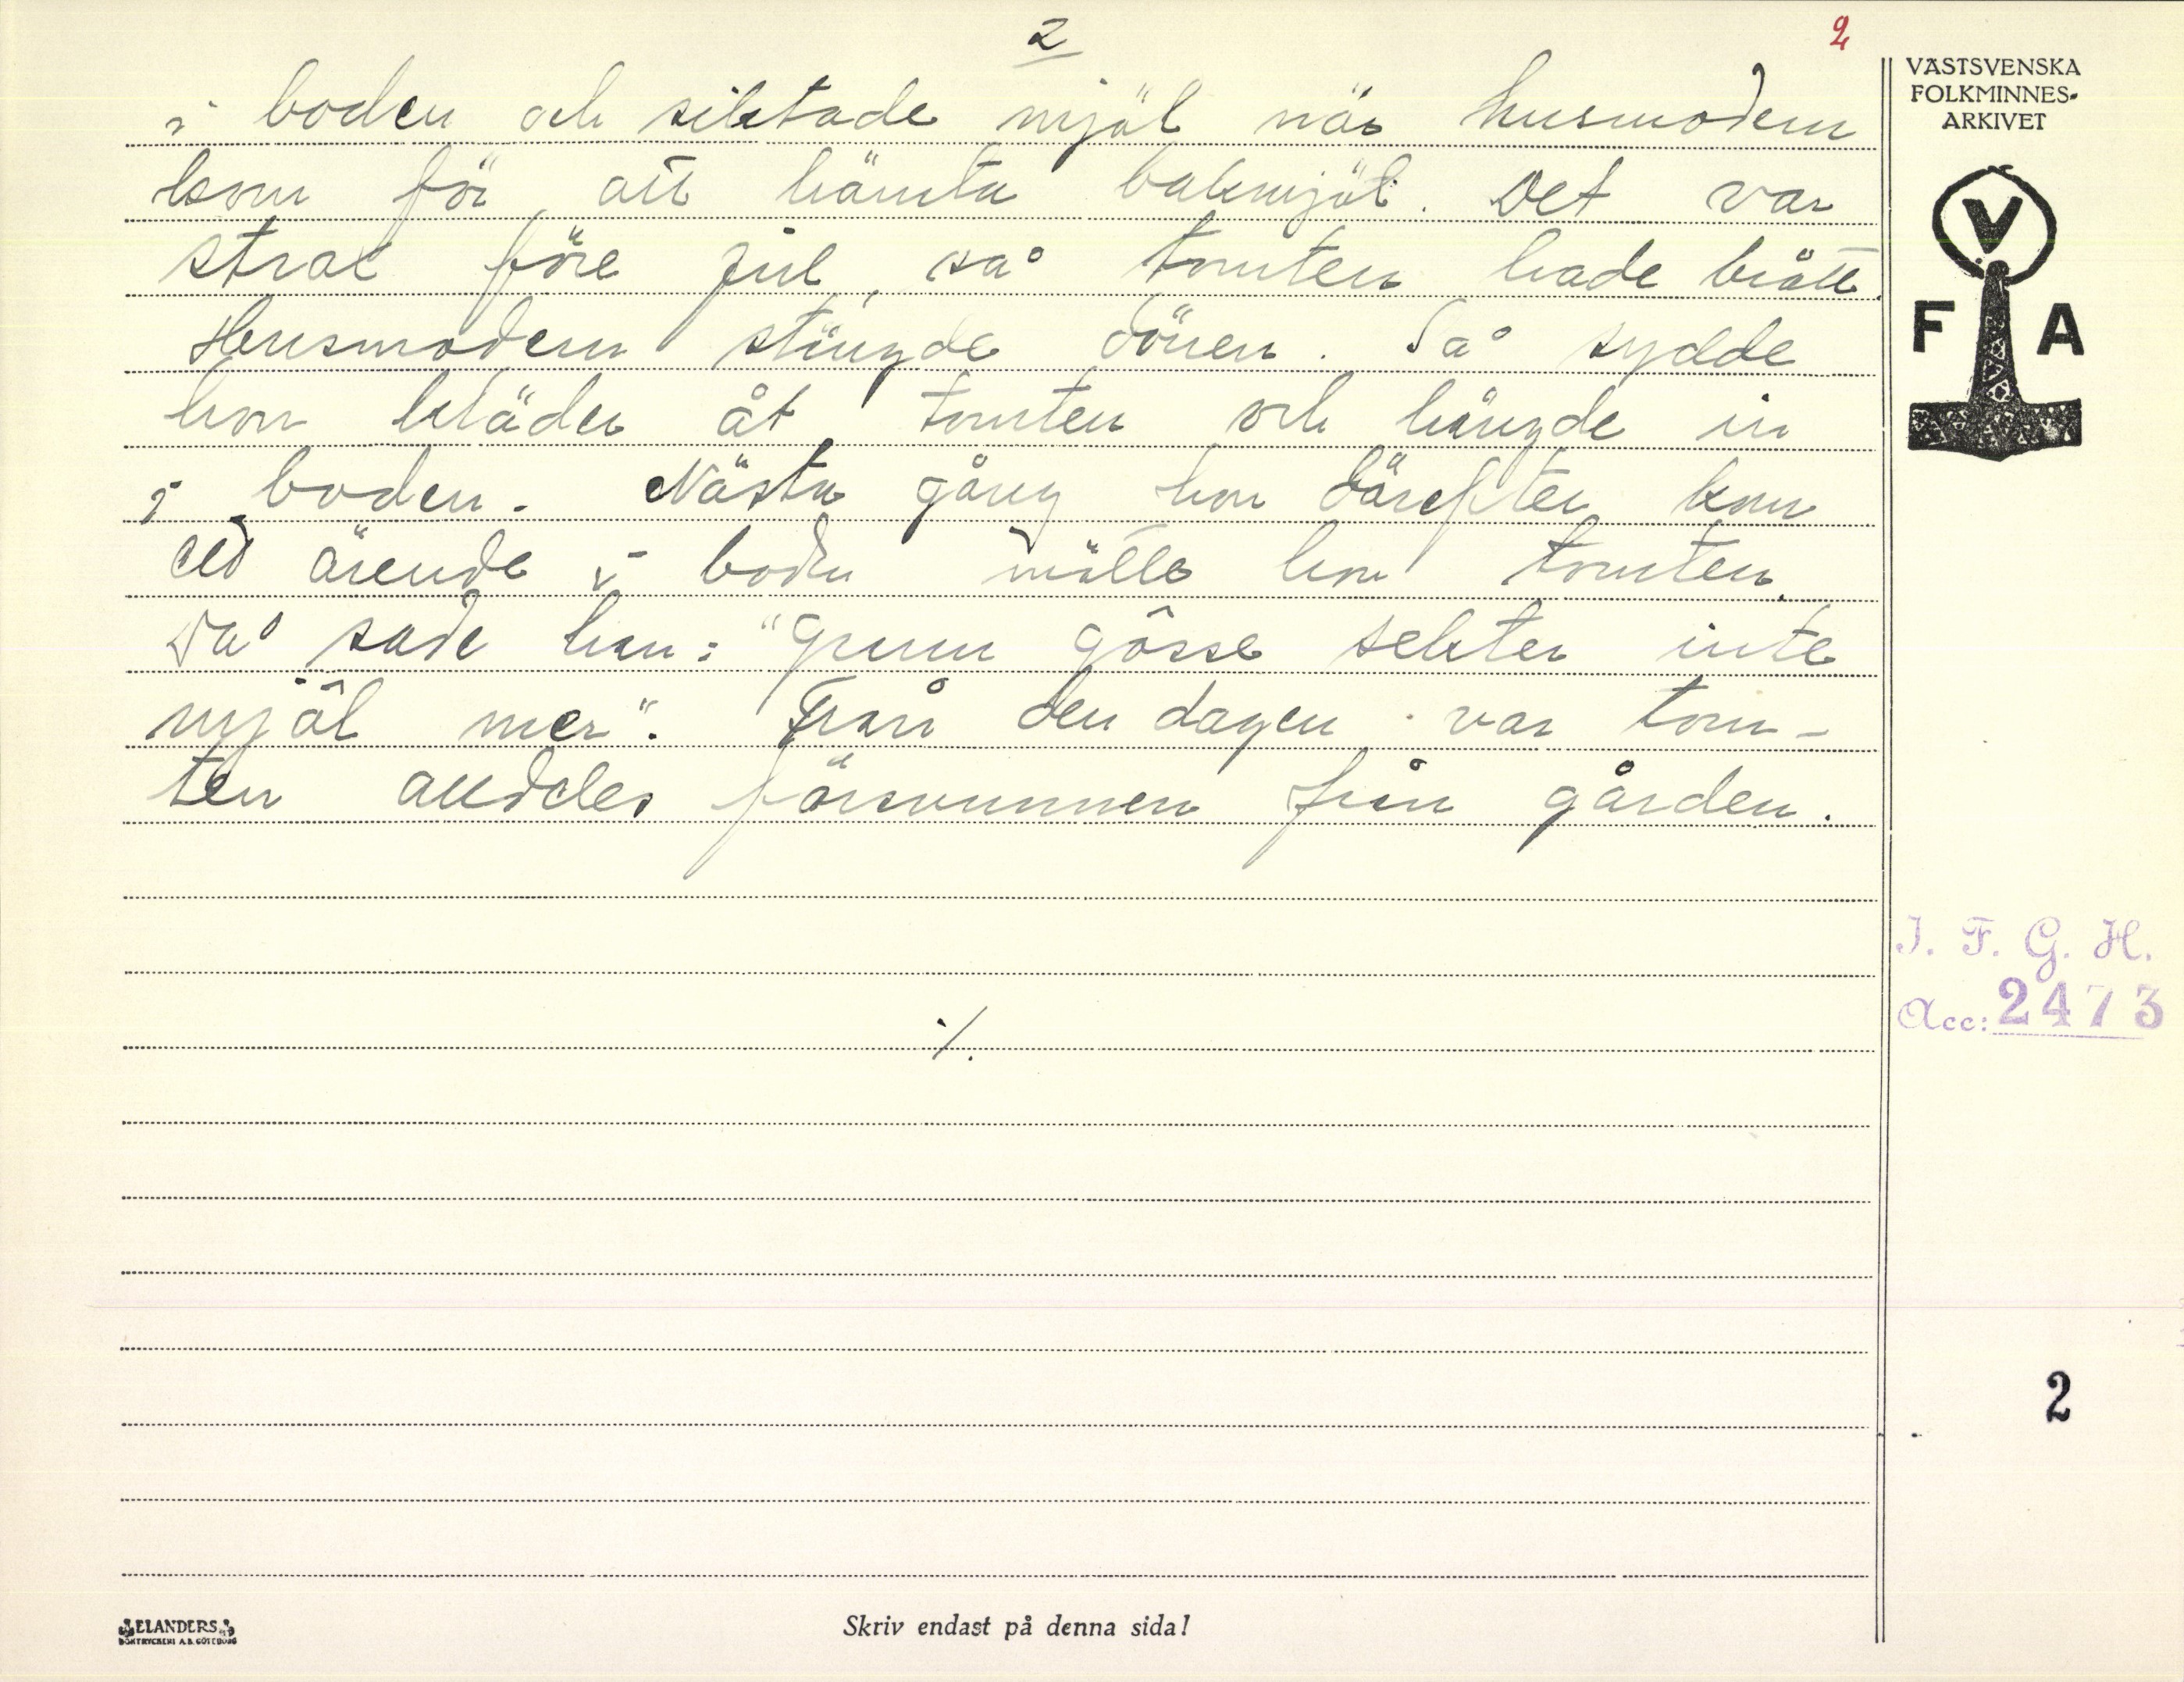 2
2
i boden och siktade mjöl när husmodern
kom för att hämta bakmjöl. Det var
strax före jul, så tomten hade brått.
Husmodern stängde dörren. Så sydde
hon kläder åt tomten och hängde in
i boden. Nästa gång hon därefter kom
ärende i boden mötte hon tomten.
Då sade han: "Grann gôsse sekter inte
mjöl mer". Från den dagen var tom-
ten alldeles försvunnen från gården.
./.
VÄSTSVENSKA
FOLKMINNES-
ARKIVET
V
F A
I. F. G. H.
Acc: 2473
2
ELANDERS
BOKTRYCKERI A.B. GÖTEBORG
Skriv endast på denna sida!